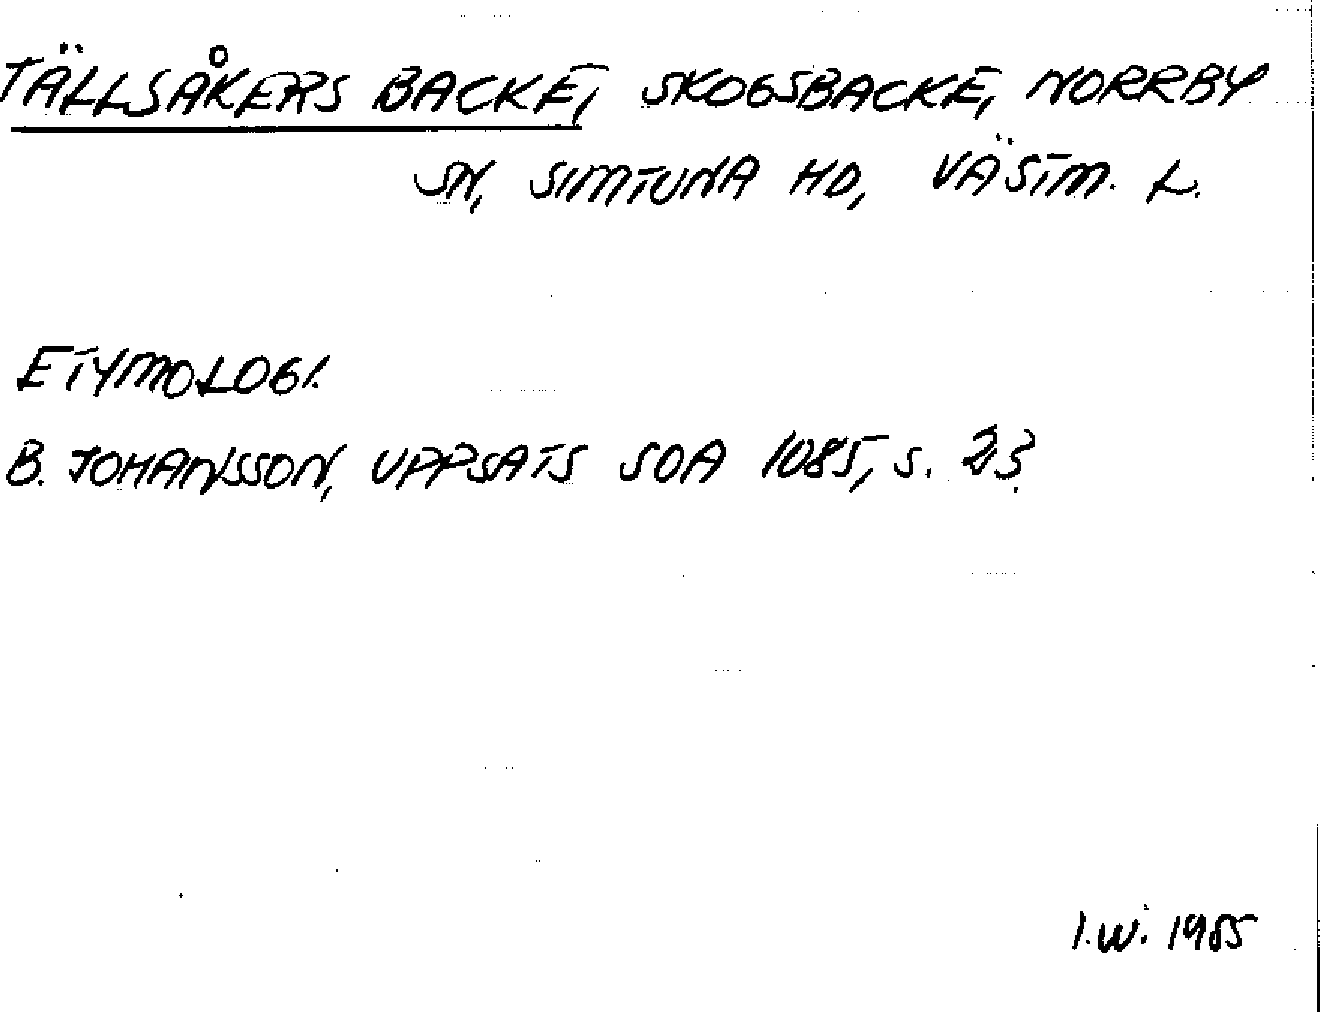 TÄLLSÅKERS BACKE, SKOGSBACKE, NORRBY
SN, SIMTUNA HD, VÄSTM. L.
ETYMOLOGI.
B. JOHANSSON, UPPSATS SOA 1085, s. 23.
I.W. 1985